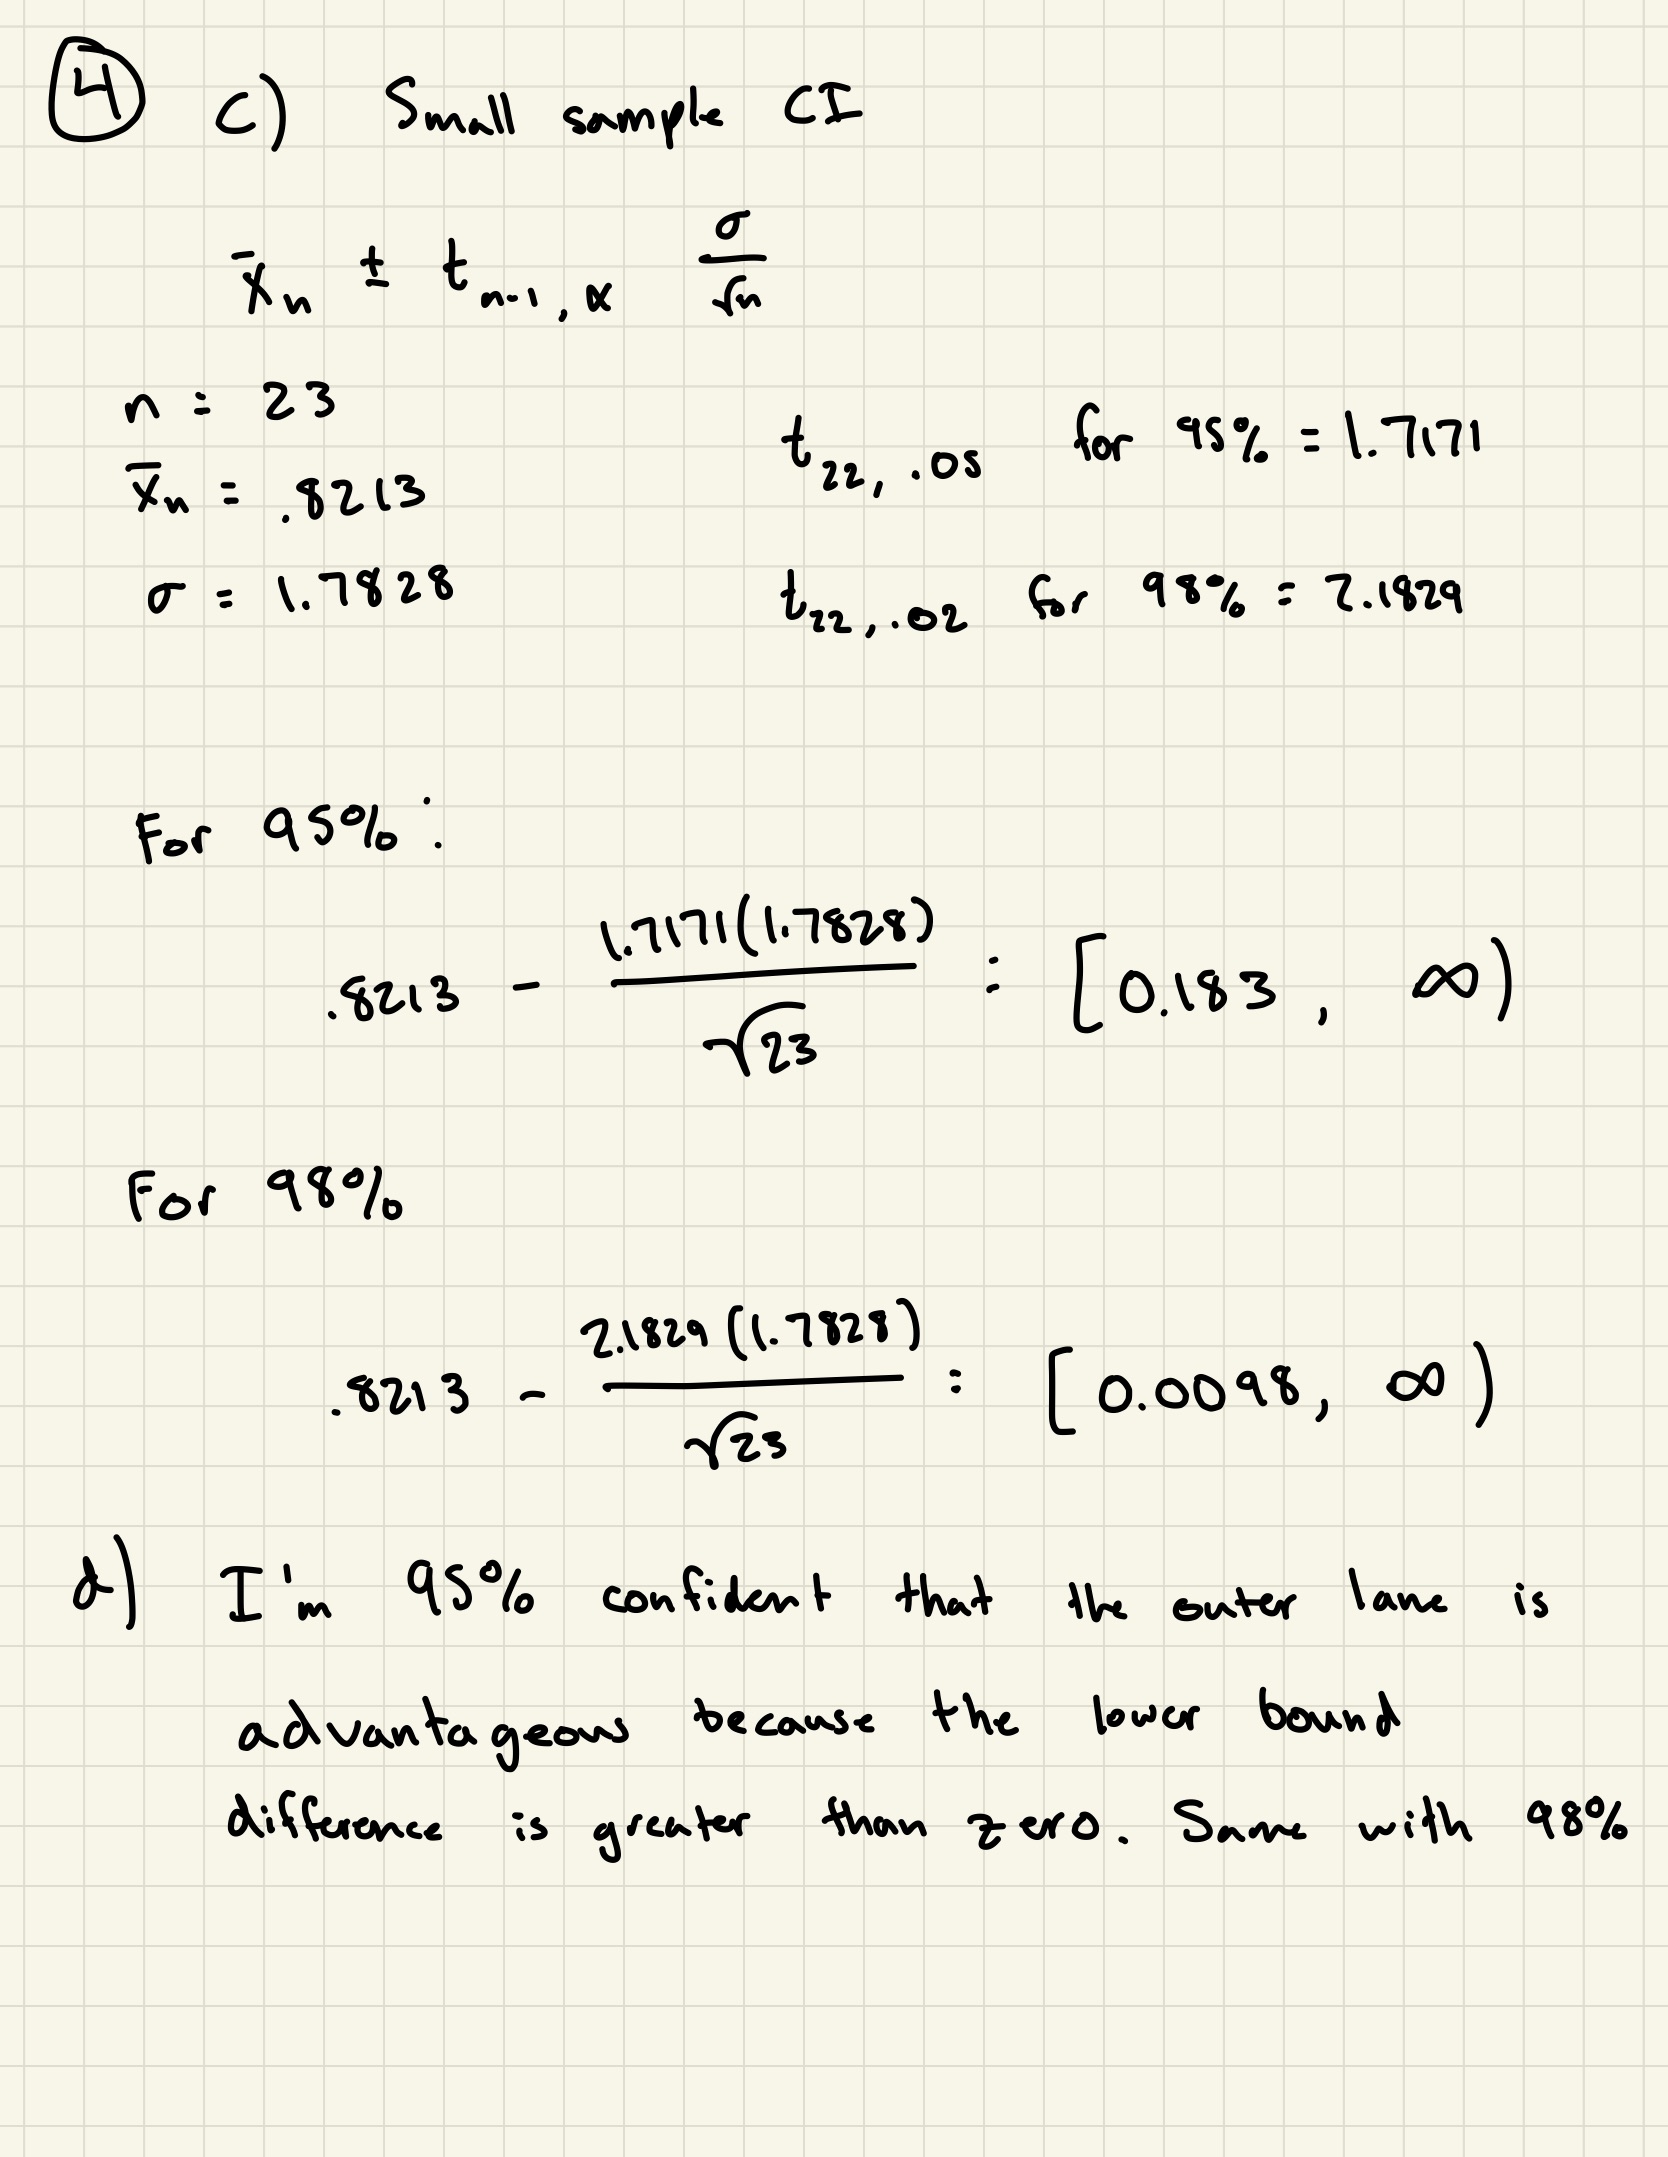 4 c) Small sample CI
x̄ₙ ± t n-1, α σ/√n
n = 23
t 22, .05 for 95% = 1.7171
x̄ₙ = .8213
σ = 1.7828
t 22, .02 for 98% = 2.1829
For 95% :
.8213 - 1.7171(1.7828)/√23 = [0.183, ∞)
For 98%
.8213 - 2.1829(1.7828)/√23 = [0.0098, ∞)
d) I'm 95% confident that the outer lane is
advantageous because the lower bound
difference is greater than zero. Same with 98%